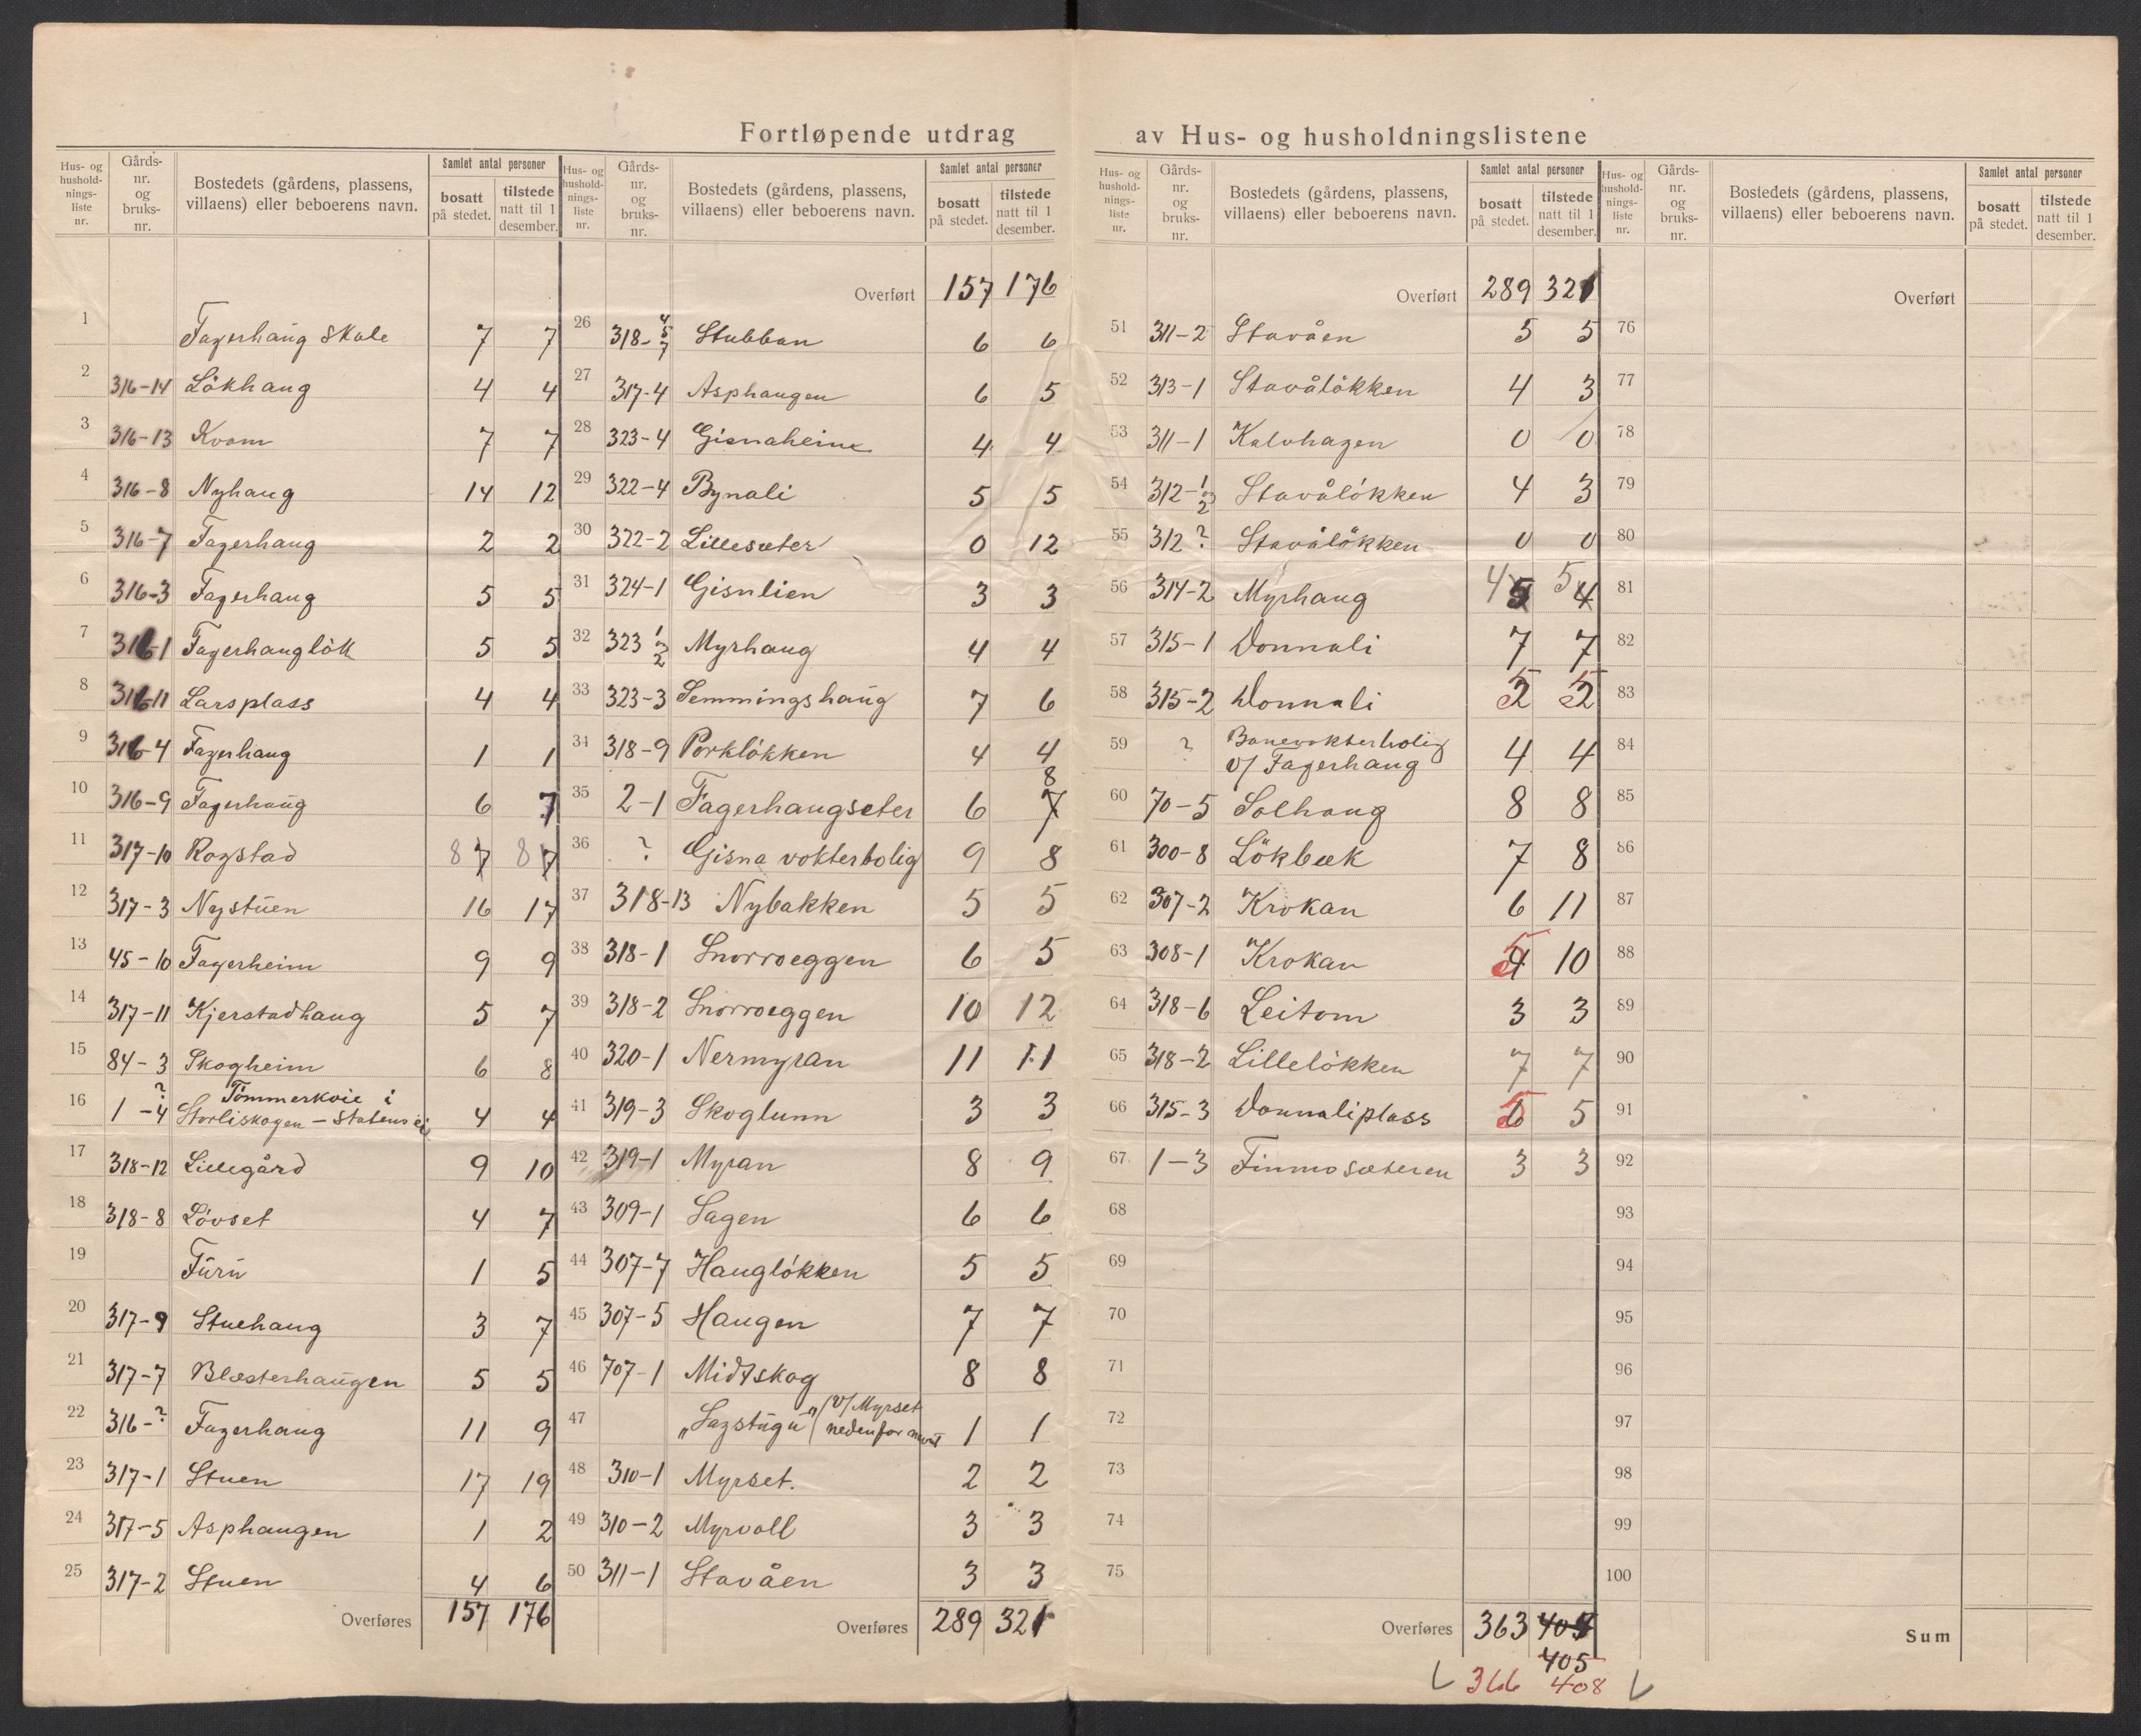 Fortløpende utdrag av Hus- og husholdningslistene
Hus- og husholdningsliste nr. Gårds-nr. og bruks-nr. Bostedets (gårdens, plassens, villaens) eller beboerens navn. Samlet antal personer bosatt på stedet. tilstede natt til 1 desember.
1 Fagerhaug Skole 7 7
2 316-14 Lökhaug 4 4
3 316-13 Kvam 7 7
4 316-8 Nyhaug 14 12
5 316-7 Fagerhaug 2 2
6 316-3 Fagerhaug 5 5
7 316-1 Fagerhauglök 5 5
8 316-11 Larsplass 4 4
9 316-4 Fagerhaug 1 1
10 316-9 Fagerhaug 6 7
11 317-10 Rogstad 8 7 8 7
12 317-3 Nystuen 16 17
13 45-10 Fagerheim 9 9
14 317-11 Kjerstadhaug 5 7
15 84-3 Skogheim 6 8
16 1-4 ? Tömmerkoie i
Storliskogen - Statens ei 4 4
17 318-12 Lillegård 9 10
18 318-8 Lövset 4 7
19 Furu 1 5
20 317-9 Stuehaug 3 7
21 317-7 Blæsterhaugen 5 5
22 316-? Fagerhaug 11 9
23 317-1 Stuen 17 19
24 317-5 Asphaugen 1 2
25 317-2 Stuen 4 6
Overføres 157 176
Hus- og husholdningsliste nr. Gårds-nr. og bruks-nr. Bostedets (gårdens, plassens, villaens) eller beboerens navn. Samlet antal personer bosatt på stedet. tilstede natt til 1 desember.
Overført 157 176
26 318-4 5 7 Stubban 6 6
27 317-4 Asphaugen 6 5
28 323-4 Gisnaheim 4 4
29 322-4 Bynali 5 5
30 322-2 Lillesæter 0 12
31 324-1 Gisnlien 3 3
32 323 1/2 Myrhaug 4 4
33 323-3 Semmingshaug 7 6
34 318-9 Porkløkken 4 4
35 2-1 Fagerhaugseter 6 7 8
36 ? Gisna vokterbolig 9 8
37 318-13 Nybakken 5 5
38 318-1 Snorroeggen 6 5
39 318-2 Snorroeggen 10 12
40 320-1 Nermyran 11 11
41 319-3 Skoglunn 3 3
42 319-1 Myran 8 9
43 309-1 Sagen 6 6
44 307-7 Haugløkken 5 5
45 307-5 Haugen 7 7
46 707-1 Midtskog 8 8
47 "Sagstugu" (v/ Myrset
nedenfor 1 1
48 310-1 Myrset. 2 2
49 310-2 Myrvoll 3 3
50 311-1 Stavåen 3 3
Overføres 289 321
Hus- og husholdningsliste nr. Gårds-nr. og bruks-nr. Bostedets (gårdens, plassens, villaens) eller beboerens navn. Samlet antal personer bosatt på stedet. tilstede natt til 1 desember.
Overført 289 321
51 311-2 Stavåen 5 5
52 313-1 Stavåløkken 4 3
53 311-1 Kalvhagen 0 0
54 312-1/2 Stavåløkken 4 3
55 312 ? Stavåløkken 0 0
56 314-2 Myrhaug 4 5 5 4
57 315-1 Donnali 7 7
58 315-2 Donnali 5 2 5 2
59 ? Banevokterbolig
v/ Fagerhaug 4 4
60 70-5 Solhaug 8 8
61 300-8 Lökbæk 7 8
62 307-2 Krokan 6 11
63 308-1 Krokan 5 4 10
64 318-6 Leitom 3 3
65 318-2 Lilleløkken 7 7
66 315-3 Donnaliplass 5 6 5
67 1-3 Finmosæteren 3 3
68
69
70
71
72
73
74
75
Overføres 363 404
405
366 408
Hus- og husholdningsliste nr. Gårds-nr. og bruks-nr. Bostedets (gårdens, plassens, villaens) eller beboerens navn. Samlet antal personer bosatt på stedet. tilstede natt til 1 desember.
Overført
76
77
78
79
80
81
82
83
84
85
86
87
88
89
90
91
92
93
94
95
96
97
98
99
100
Sum